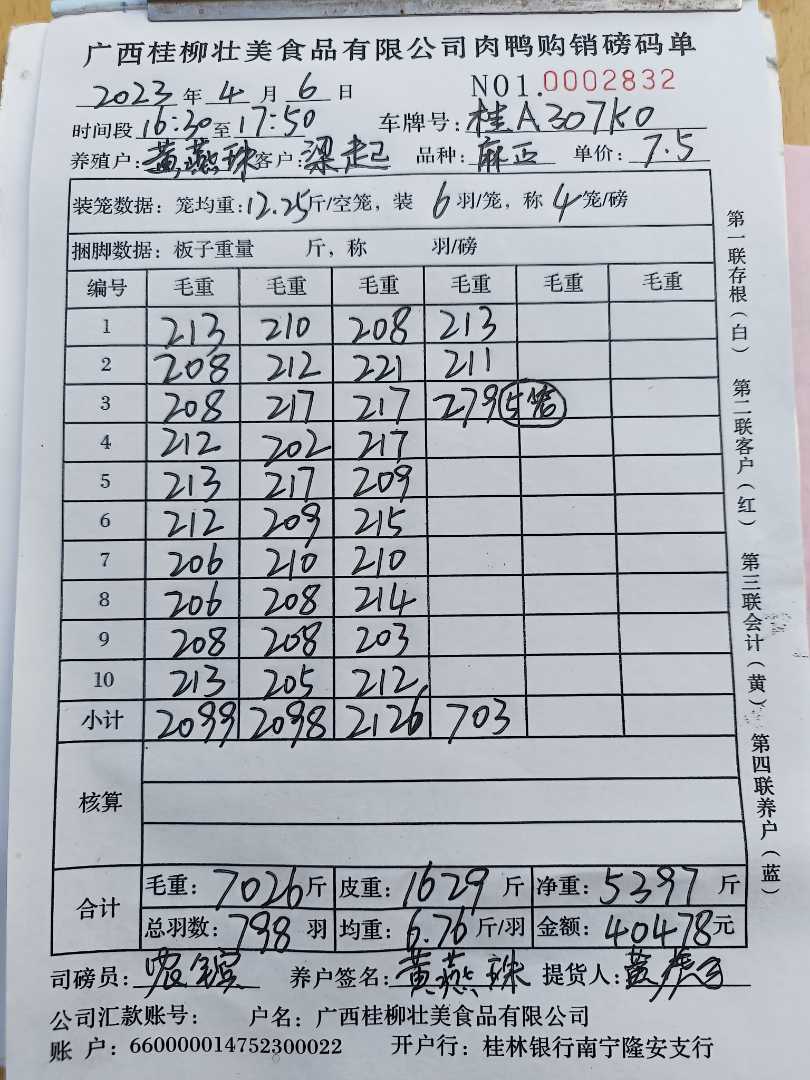 广西桂柳壮美食品有限公司肉鸭购销磅码单
2023年4月6日 NO1.0002832
时间段16:30至17:50 车牌号:桂A307K0
养殖户:黄燕珠 客户:梁起 品种:麻正 单价:7.5
装笼数据:笼均重:12.25斤/空笼,装6羽/笼,称4笼/磅
捆脚数据:板子重量 斤,称 羽/磅
编号 毛重 毛重 毛重 毛重 毛重 毛重
1 213 210 208 213
2 208 212 221 211
3 208 217 217 279 5笼
4 212 202 217
5 213 217 209
6 212 209 215
7 206 210 210
8 206 208 214
9 208 208 203
10 213 205 212
小计 2099 2098 2126 703
核算
合计 毛重:7026斤 皮重:1629斤 净重:5397斤
总羽数:798羽 均重:6.76斤/羽 金额:40478元
司磅员: 养户签名:黄燕珠 提货人:
公司汇款账号: 户名:广西桂柳壮美食品有限公司
账 户:660000014752300022 开户行:桂林银行南宁隆安支行
第一联存根(白) 第二联客户(红) 第三联会计(黄) 第四联养户(蓝)